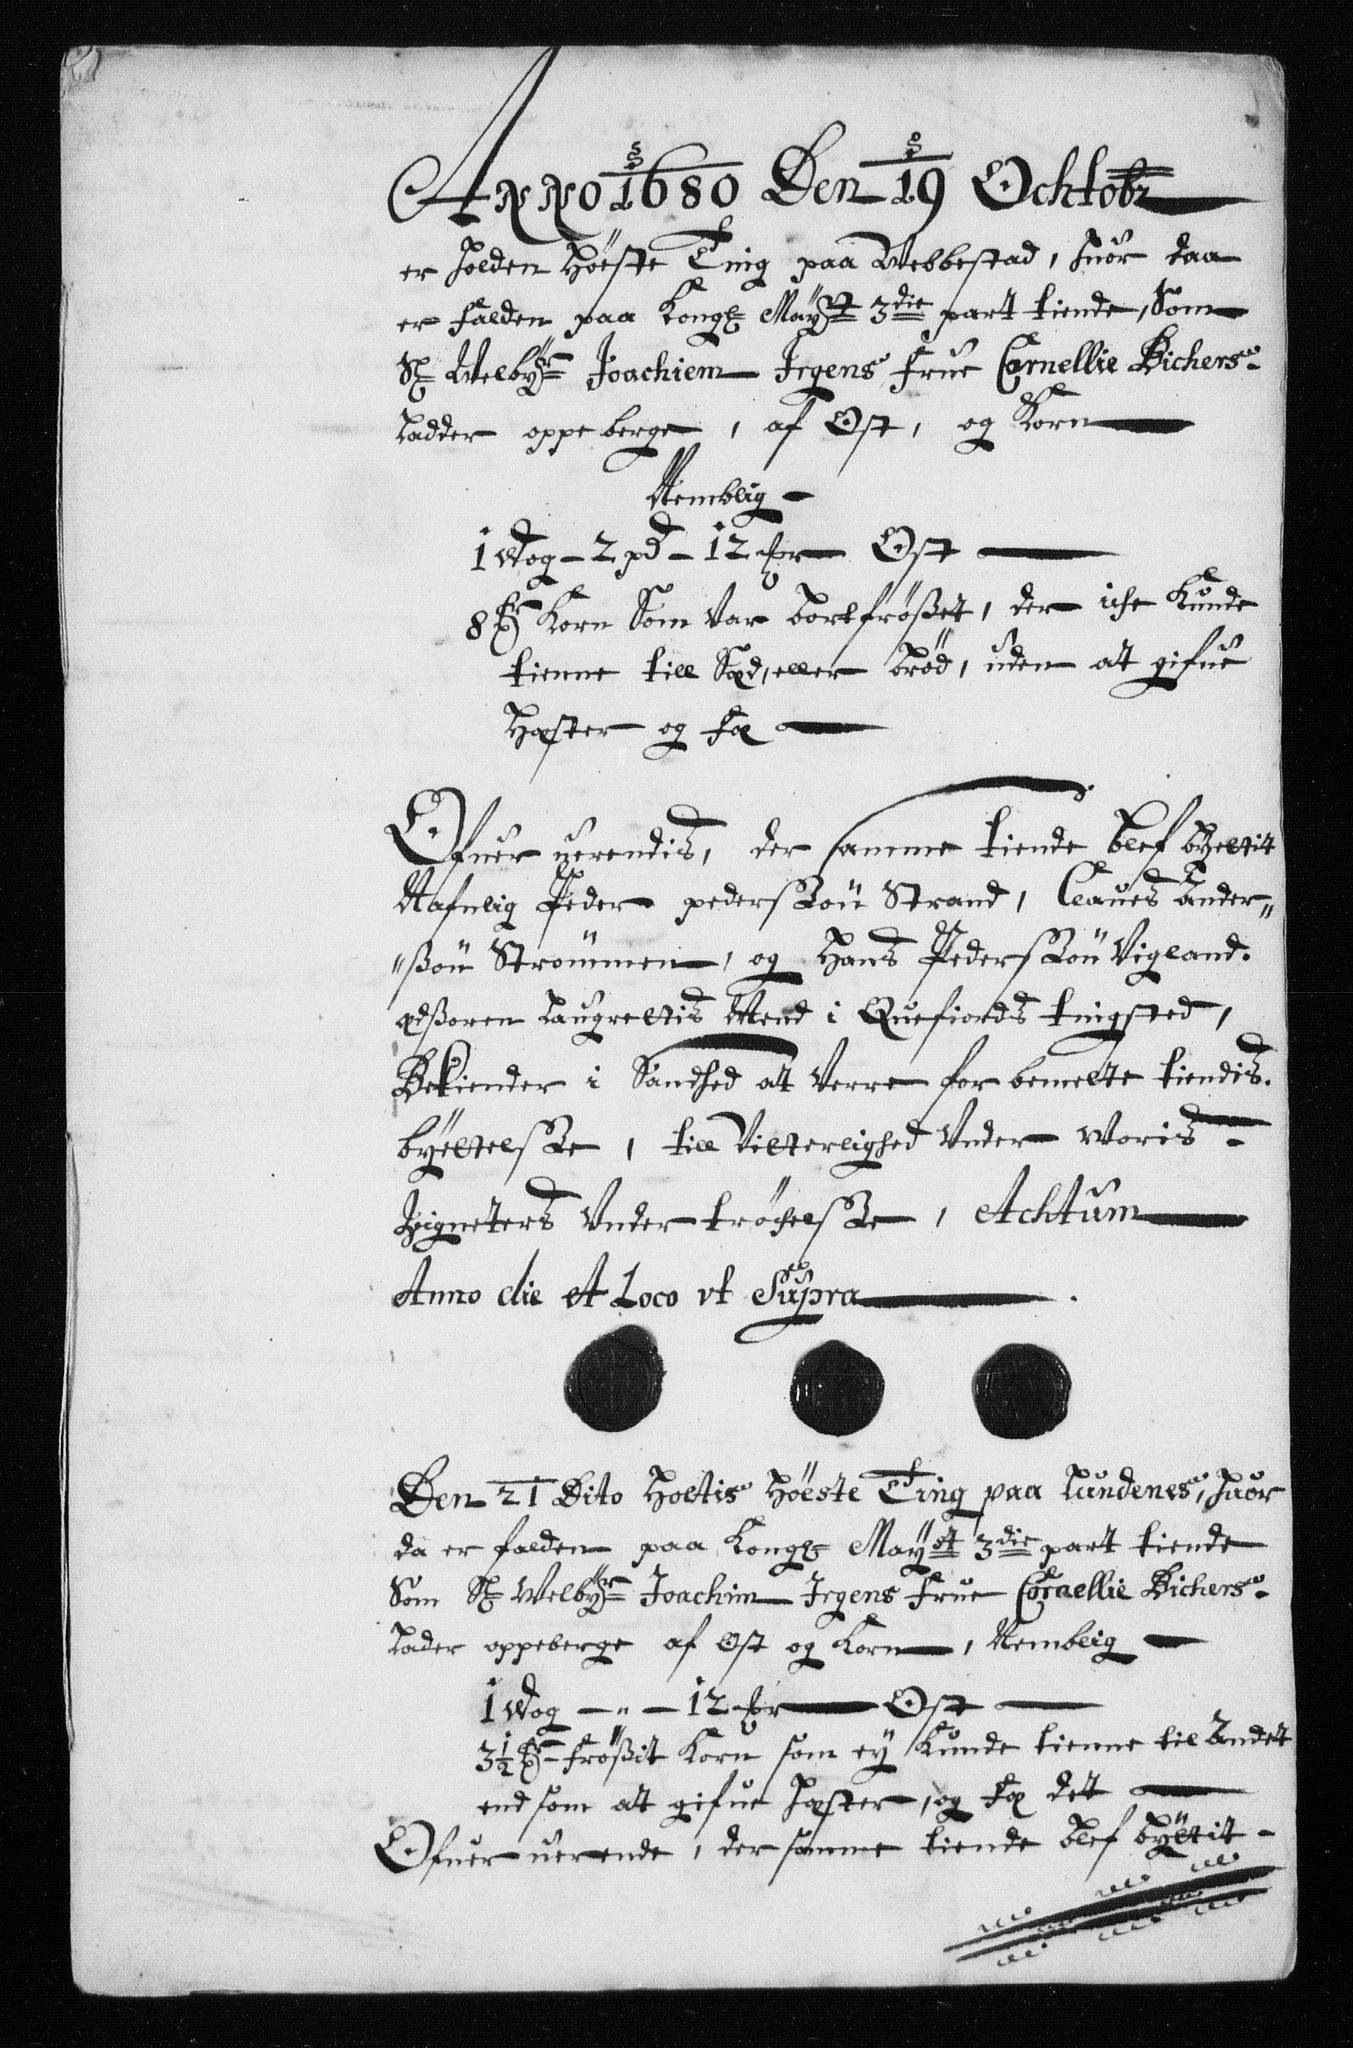 Anno 1680 Den 19 Ochtobr
er holden Höeste Ting paa Webbestad, huor daa
er falden paa Kongl Mayst 3die part tiende, Som
Sl Welbyr Joachiem Irgens Frue Cornellie Bichers
Lader oppeberge, af Ost, og Korn
Nemblig
1 Wog - 2 pd - 12 mr Ost
8 Korn Som Var bortfrößet, der iche Kunde
tienne till Sæd, eller brød, uden at gifue
Hæster og Fæ
Ofuer uerendis, der samme tiende blef byeltit
Nafnlig Peder pedersßøn Strand, Claues Ander"
"ßøn Strømmen, og Hans Pedersßøn Vigland.
edßoren Laugrettis Mend i Quefiords tingsted,
Bekiender i Sandhed at Verre for bemelte tiendis
byeltelsße, till Vitterlighed Vnder Woris
Zigneters Vnder trøchelsße, Achtum
Anno die et Loco vt Supra
Den 21 Dito Holtis Höeste Ting paa Lundenes, huor
da er falden paa Kongl Mayst 3die part tiende
Som Sl Welbyr Joachim Irgens Frue Cornellie Bichers
Lader oppeberge af Ost og Korn, Nemblig
1 Wog - " - 12 mr Ost
3½ frößit Korn som ey Kunde tienne til Andet
end som at gifue Hæster, og Fæ det
Ofuer uerende, der samme tiende blef byeltit